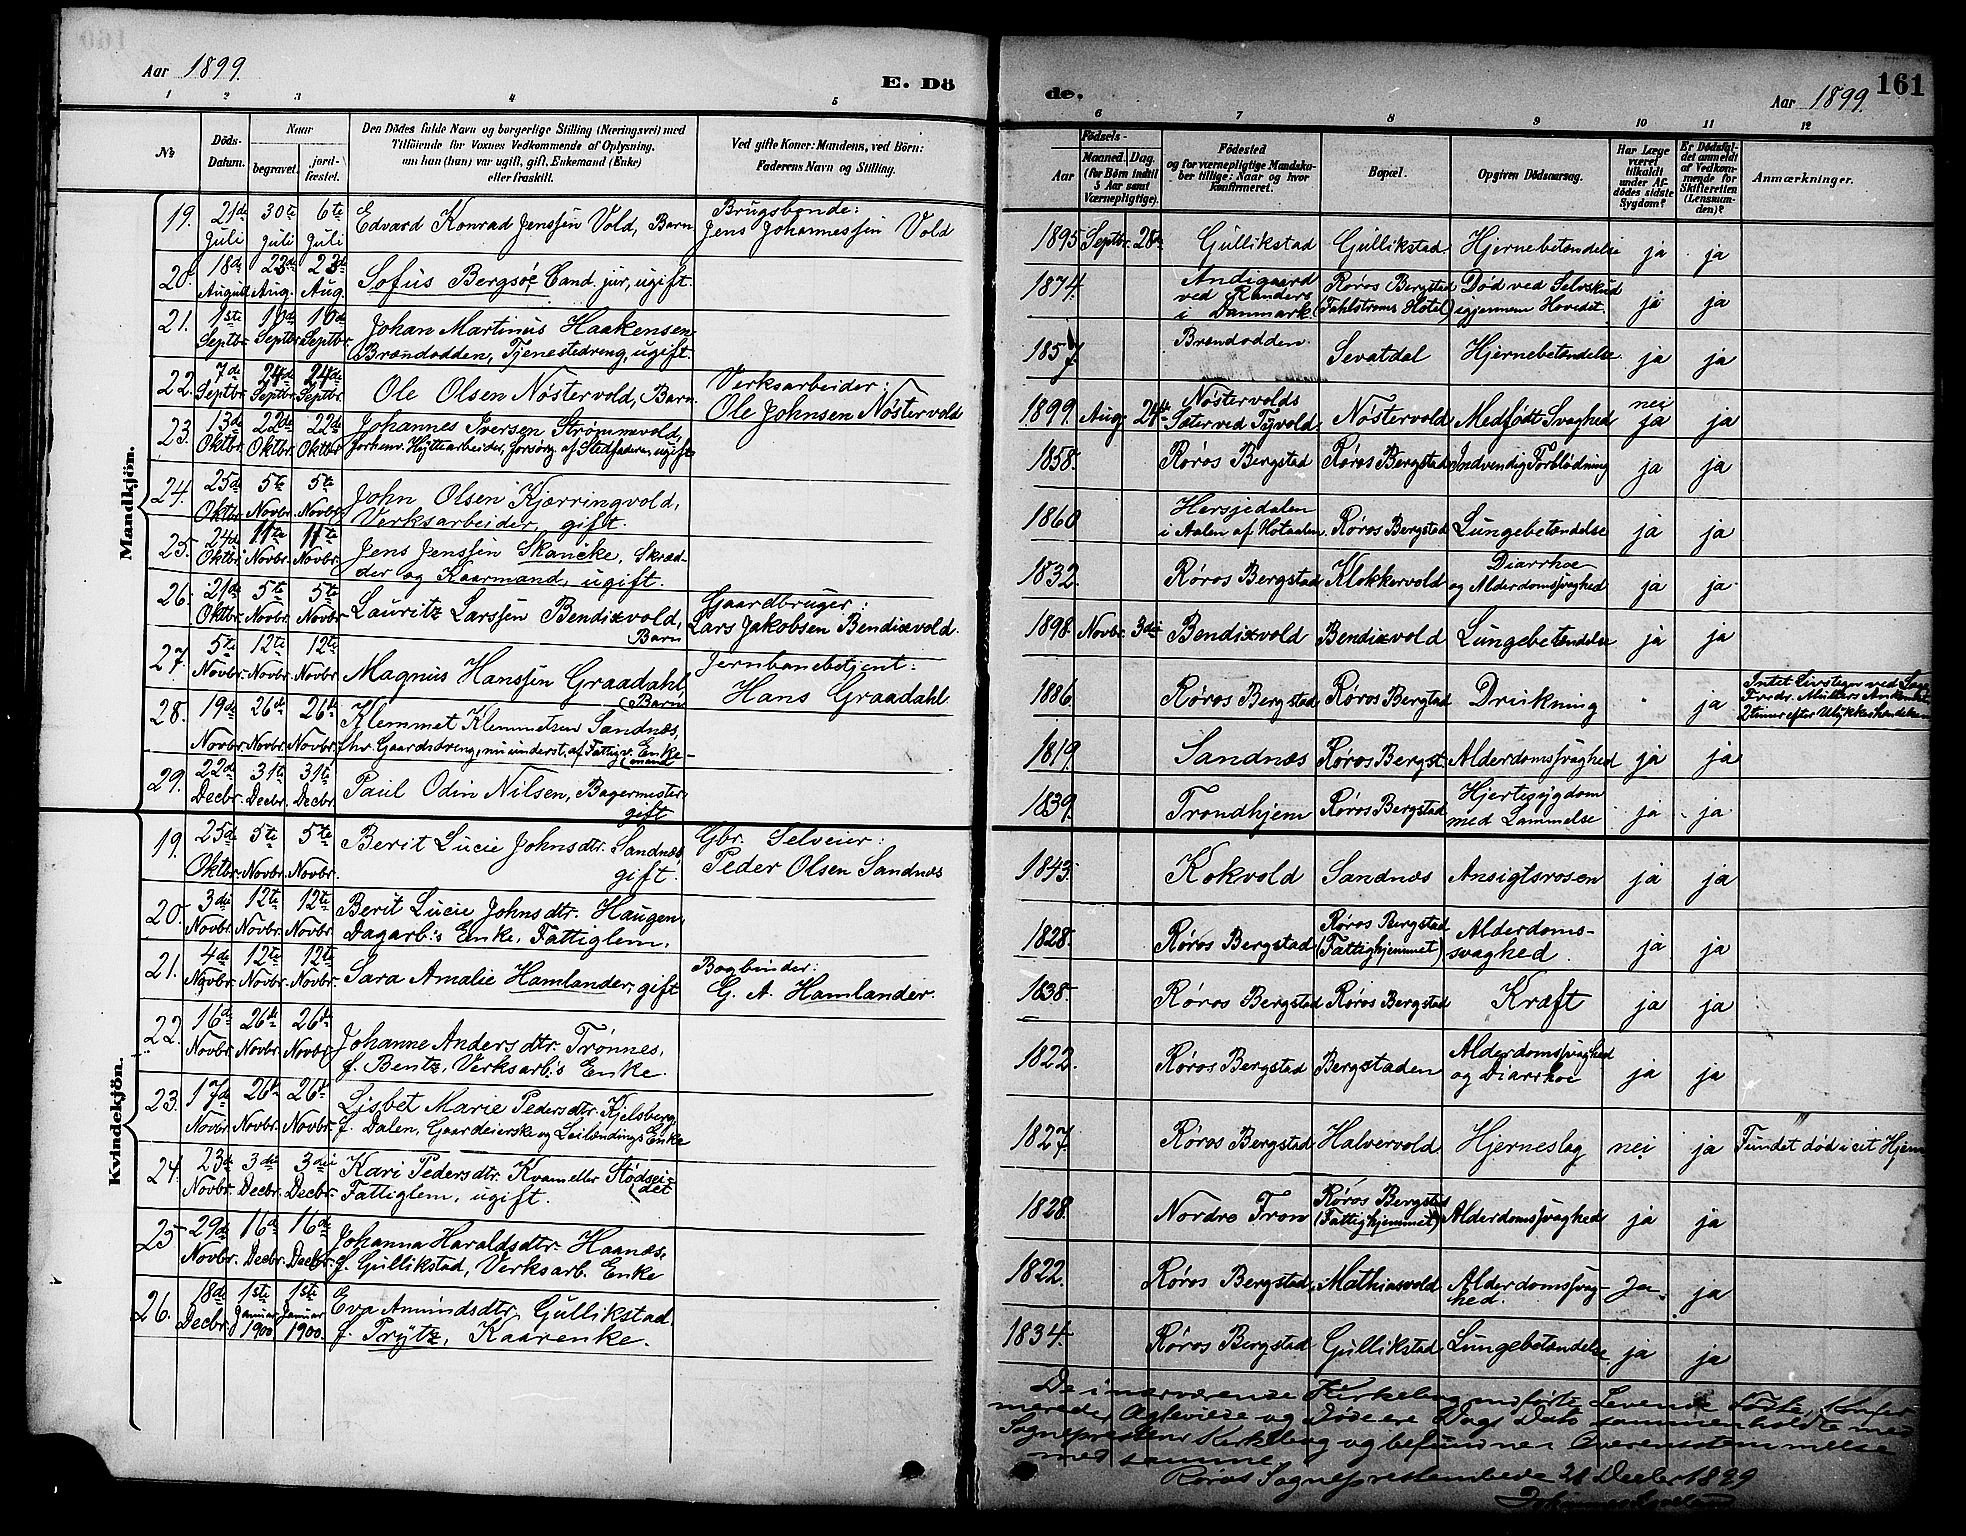 Aar 1899.
E. Dö
1 2 3 4 5
№
Döds-
Datum.
Naar
begravet.
jord-
fæstet.
Den Dödes fulde Navn og borgerlige Stilling (Næringsvei) med
Tilföiende for Voxnes Vedkommende af Oplysning,
om han (hun) var ugift, gift, Enkemand (Enke)
eller fraskilt.
Ved gifte Koner: Mandens, ved Börn:
Faderens Navn og Stilling.
Mandkjön.
19. 21de Juli 30te Juli 6te Juli Edvard Konrad Jenssen Vold, Barn Brugsbonde:
Jens Johannessen Vold
20. 18de August 23de Aug. 23de Aug. Sofus Bergsøe Cand. jur, ugift.
21. 1ste Septbr. 10de Septbr. 10de Septbr. Johan Martinus Haakensen
Brændodden, Tjenestedreng, ugift.
22. 7de Septbr. 24de Septbr. 24de Septbr. Ole Olsen Nöstervold, Barn Verksarbeider:
Ole Johnsen Nöstervold
23. 13de Oktbr. 22de Oktbr. 22de Oktbr. Johannes Iversen Strømmevold,
forhenv. Hyttearbeider, forsörg. af Stedfaderen, ugift
24. 25de Oktbr. 5te Novbr. 5te Novbr. John Olsen Kjærringvold,
Verksarbeider, gift.
25. 24de Oktbr. 11te Novbr. 11te Novbr. Jens Jenssen Skancke, Skræd-
der og Kaarmand, ugift.
26. 21de Oktbr. 5te Novbr. 5te Novbr. Lauritz Larssen Bendixvold,
Barn Gaardbruger:
Lars Jakobsen Bendixvold.
27. 5te Novbr. 12te Novbr. 12te Novbr. Magnus Hanssen Graadahl,
(Barn Jernbanebetjent:
Hans Graadahl
28. 19de Novbr. 26de Novbr. 26de Novbr. Klemmet Klemmetsen Sandnæs,
fhv. Gaardsdreng, nu underst. af Fattigv. Enke-
mand
29. 22de Decbr. 31te Decbr. 31te Decbr. Paul Odin Nilsen, Bagermester
gift
Kvindekjön.
19. 25de Oktbr. 5te Novbr. 5te Novbr. Berit Lucie Johnsdtr. Sandnæs,
gift. Gbr. Selveier:
Peder Olsen Sandnæs
20. 3die Novbr. 12te Novbr. 12te Novbr. Berit Lucie Johnsdtr. Haugen,
Dagarb.s Enke, Fattiglem.
21. 4de Novbr. 12te Novbr. 12te Novbr. Sara Amalie Hamlander, gift Bogbinder:
G. A. Hamlander.
22. 16de Novbr. 26de Novbr. 26de Novbr. Johanne Andersdtr. Trønnes,
f. Bentz, Verksarb.s Enke.
23. 17de Novbr. 26de Novbr. 26de Novbr. Lisbet Marie Pedersdtr. Kjelsberg,
f. Dalen, Gaardeierske og Leilændings Enke
24. 23de Novbr. 3die Decbr. 3die Decbr. Kari Pedersdtr. Kvam eller Stödsei-
det
Fattiglem, ugift.
25 29de Novbr. 16de Decbr. 16de Decbr. Johanna Haraldsdtr. Haanæs,
f. Gullikstad, Verksarb. Enke
26. 18de Decbr. 1ste Januar 1900 1ste Januar 1900. Eva Amundsdtr. Gullikstad
f. Prÿtz, Kaarenke.
de.
Aar 1899.
161
6 7 8 9 10 11 12
Födsels-
Aar
Maaned. Dag.
(for Börn indtil
5 Aar samt
Værnepligtige).
Födested
og for værnepligtige Mandska-
ber tillige: Naar og hvor
konfirmeret.
Bopæl.
Opgiven Dödsaarsag.
Har Læge
været
tilkaldt
under Af-
dödes sidste
Sygdom?
Er Dödsfal-
det anmeldt
af Vedkom-
mende for
Skifteretten
(Lensman-
den)?
Anmærkninger.
1895 Septbr. 28de Gullikstad Gullikstad Hjernebetændelse ja ja
1874. Andigaard
ved Randers
i Danmark Røros Bergstad
(Fahlstrøms Hotel) Död ved Selvskud
igjennem Hovedet. ja ja
1857 Brændodden Sevatdal Hjernebetændelse ja ja
1899. Aug. 24de Nöstervolds
Sæter ved Tyvold Nöstervold Medfödt Svaghed nei
ja ja
1858. Røros Bergstad Røros Bergstad Indvendig Forblödning ja ja
1860 Hersjedalen
i Aalen af Hotaalen. Røros Bergstad Lungebetændelse ja ja
1832. Røros Bergstad Klokkervold Diarrhoe
og Alderdomssvaghed ja ja
1898. Novbr. 3die Bendixvold Bendixvold Lungebetændelse ja ja
1886. Røros Bergstad Røros Bergstad Drukning ja Intet Livstegn ved Læge
Fredr. Müllers Ankomst
2 timer efter Ulykkeshændelsen
1819. Sandnæs Røros Bergst. Alderdomssvaghed ja ja
1839. Trondhjem Røros Bergstad Hjertesygdom
med Lammelse ja ja
1843. Kokvold Sandnæs Ansigtsrosen ja ja
1828. Røros Bergstad Røros Bergstad
(Fattighjemmet) Alderdoms-
svaghed. ja ja
1838. Røros Bergstad Røros Bergstad Kræft ja ja
1822. Røros Bergstad Bergstaden Alderdomssvaghed
og Diarrhoe ja ja
1827. Røros Bergstad Halvervold Hjerneslag nei ja Fundet död i sit Hjem
1828. Nordre Fron Røros Bergstad
(Fattighjemmet) Alderdomssvaghed ja ja
1822. Røros Bergstad Mathiasvold Alderdomssvag-
hed. Ja. ja
1834. Røros Bergstad Gullikstad Lungebetændelse ja ja
De i nærværende Kirkebog indførte Levende Födte, Konfir
merede, Ægteviede og Döde ere Dags Dato sammenholdte med
Sognepræstens Kirkebog og befundne i Overensstemmelse
med samme.
Røros Sognepræstembede 21 Decbr 1899